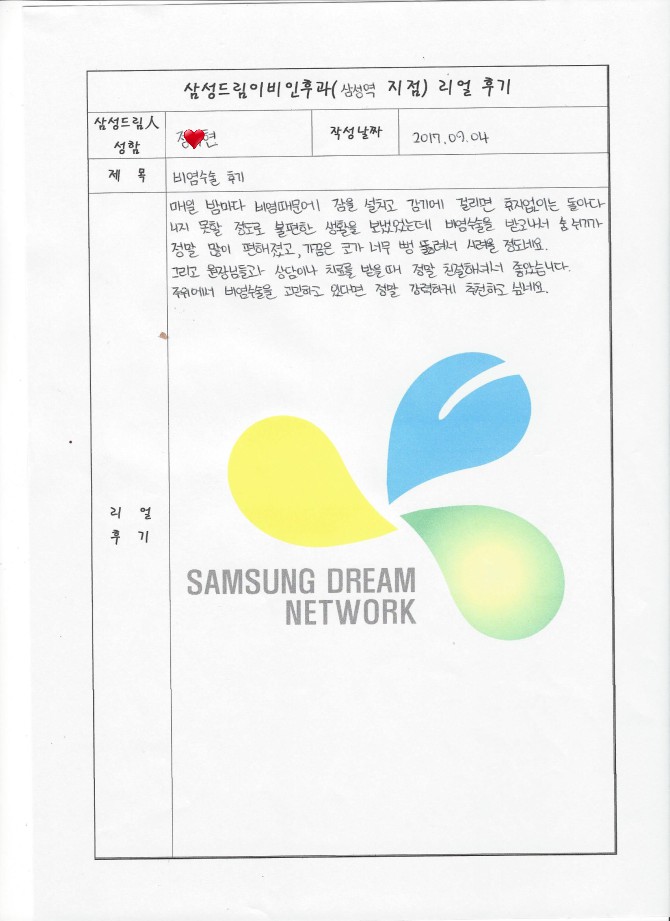 삼성드림이비인후과(삼성역 지점) 리얼 후기
삼성드림人 성함
정 현
작성날짜
2017.09.04
제 목
비염수술 후기
매일 밤마다 비염때문에 잠을 설치고 감기에 걸리면 휴지없이는 돌아다
니지 못할 정도로 불편한 생활을 보냈었는데 비염수술을 받고나서 숨쉬기가
정말 많이 편해졌고, 가끔은 코가 너무 뻥 뚫려서 시려울 정도네요.
그리고 원장님들과 상담이나 치료를 받을때 정말 친절하셔서 좋았습니다.
주위에서 비염수술을 고민하고 있다면 정말 강력하게 추천하고 싶네요.
리 얼
후 기
SAMSUNG DREAM
NETWORK